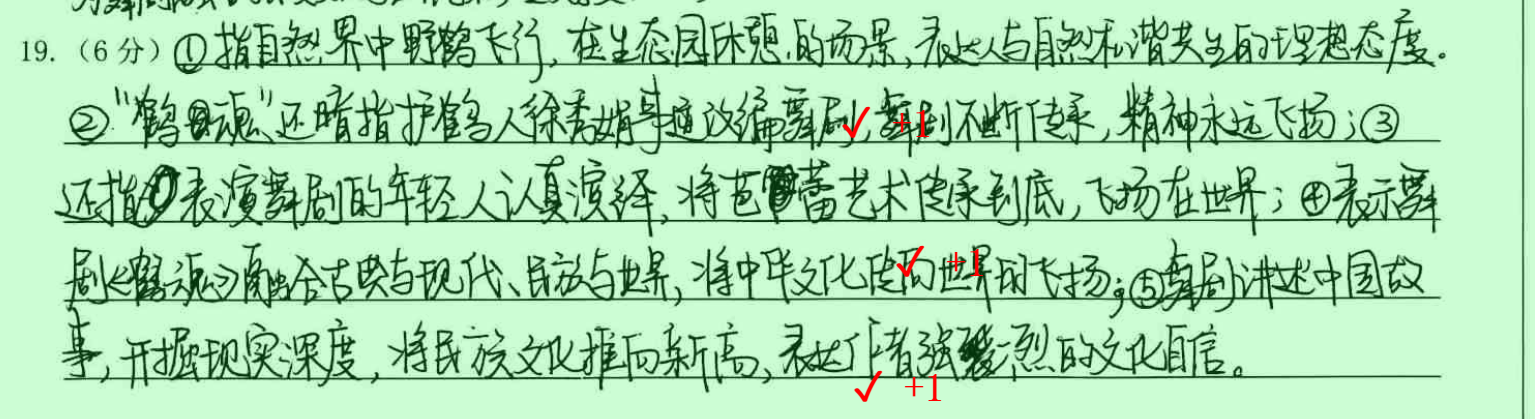 19.（6分）①指自然界中野鹤飞行,在生态园休憩的场景,表达人与自然和谐共生的理想态度。
②“鹤魂”还暗指护鹤人徐秀娟事迹改编舞剧,舞剧不断传承,精神永远飞扬;③
✓ +1
还指表演舞剧的年轻人认真演绎,将芭蕾艺术传承到底,飞扬在世界;④表示舞
剧《鹤魂》融合古典与现代、民族与世界,将中华文化传向世界的飞扬;⑤舞剧讲述中国故
✓ +1
事,开掘现实深度,将民族文化推向新高,表达作者强烈的文化自信。
✓ +1